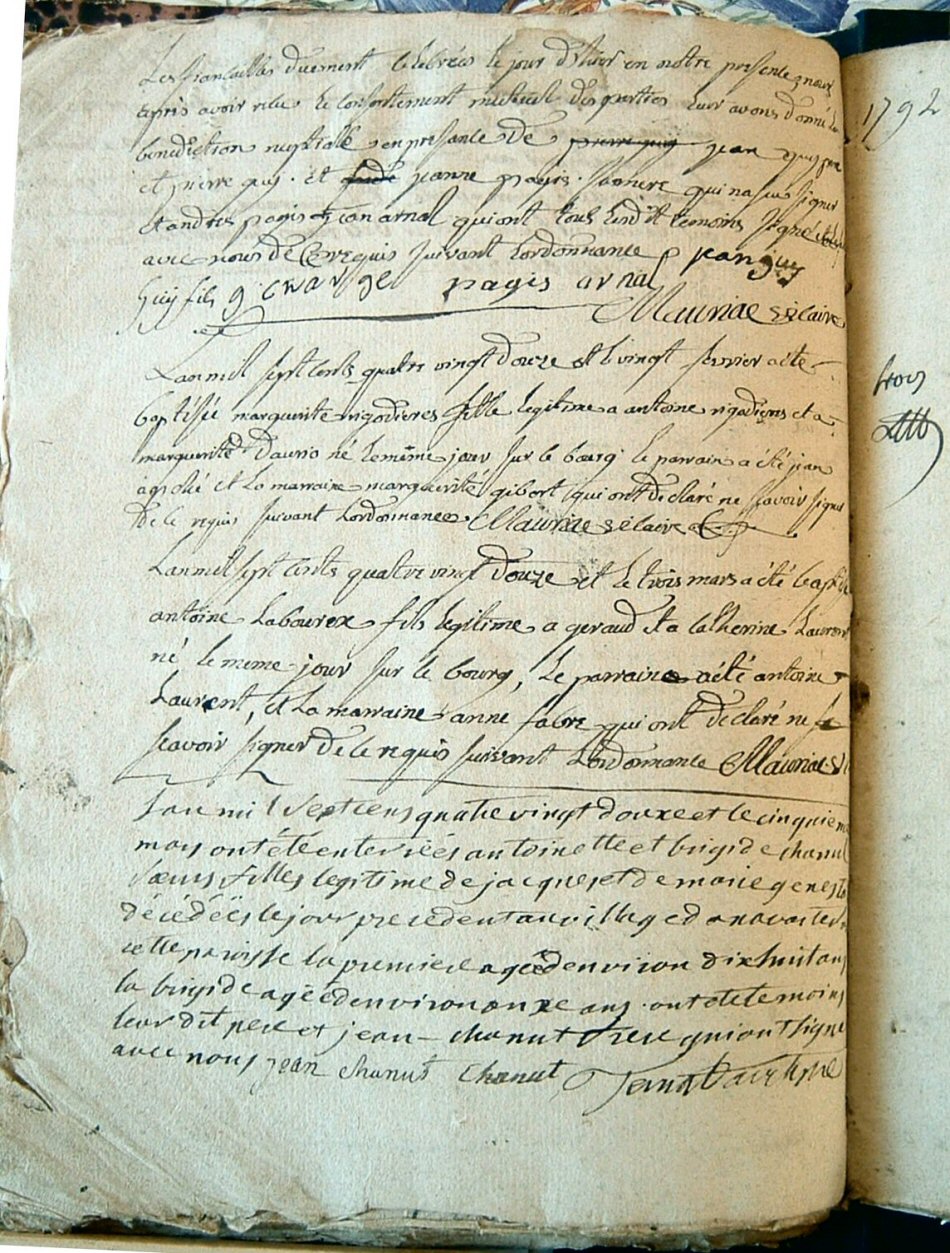 Les fiancailles duement celebrées le jour d'hier en notre presence nous
apris avoir recu le consentement mutuel des parties leur avons donné la
benediction nuptialle en presance de pierre guy jean guy pere
et pierre guy. et jeanne pagis. sa mere qui na su signer
et andres pagis et jean arnal qui ont tous lesd't temoins signé
avec nous de ce requis suivant Lordonnance jean guy
guy fils g. pagis arnal
Mauriac vicaire
Lan mil sept cents quatre vingt douze et le vingt fevrier a été
baptisée marguerite rigodieres fille legitime a antoine rigodieres et a
marguerite Daurio né le même jour sur le bourg. le parrain a été jean
et la marraine marguerite gibert qui ont declaré ne scavoir signer
de ce requis suivant Lordonnance Mauriac vicaire
Lan mil sept cents quatre vingt douze et le trois mars a été baptisé
antoine Labourex fils legitime a geraud et a catherine Laurent
né le meme jour sur le bourg, le parrain a été antoine
Laurent, et La marraine anne fabre qui ont declaré ne
scavoir signer de ce requis suivant Lordonnance Mauriac
Lan mil sept cens quatre vingt douxe et le cinquieme
mars ont été enterrées antoinette et brigide chanut
sœurs filles legitime de jacques et de marie genest
décédéës le jour precedent au village
cette paroisse la premiere agéé denviron dix huit ans
la brigide agéé denviron onxe ans. ont ete temoins
leur dit pere et jean chanut frere qui ont signé
avec nous jean chanut chanut
1792
trois